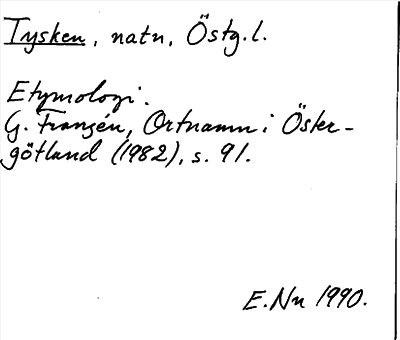 Tysken, natn, Östg.l.
Etymologi.
G. Franzén, Ortnamn i Öster-
götland (1982), s. 91.
E.Nn 1990.